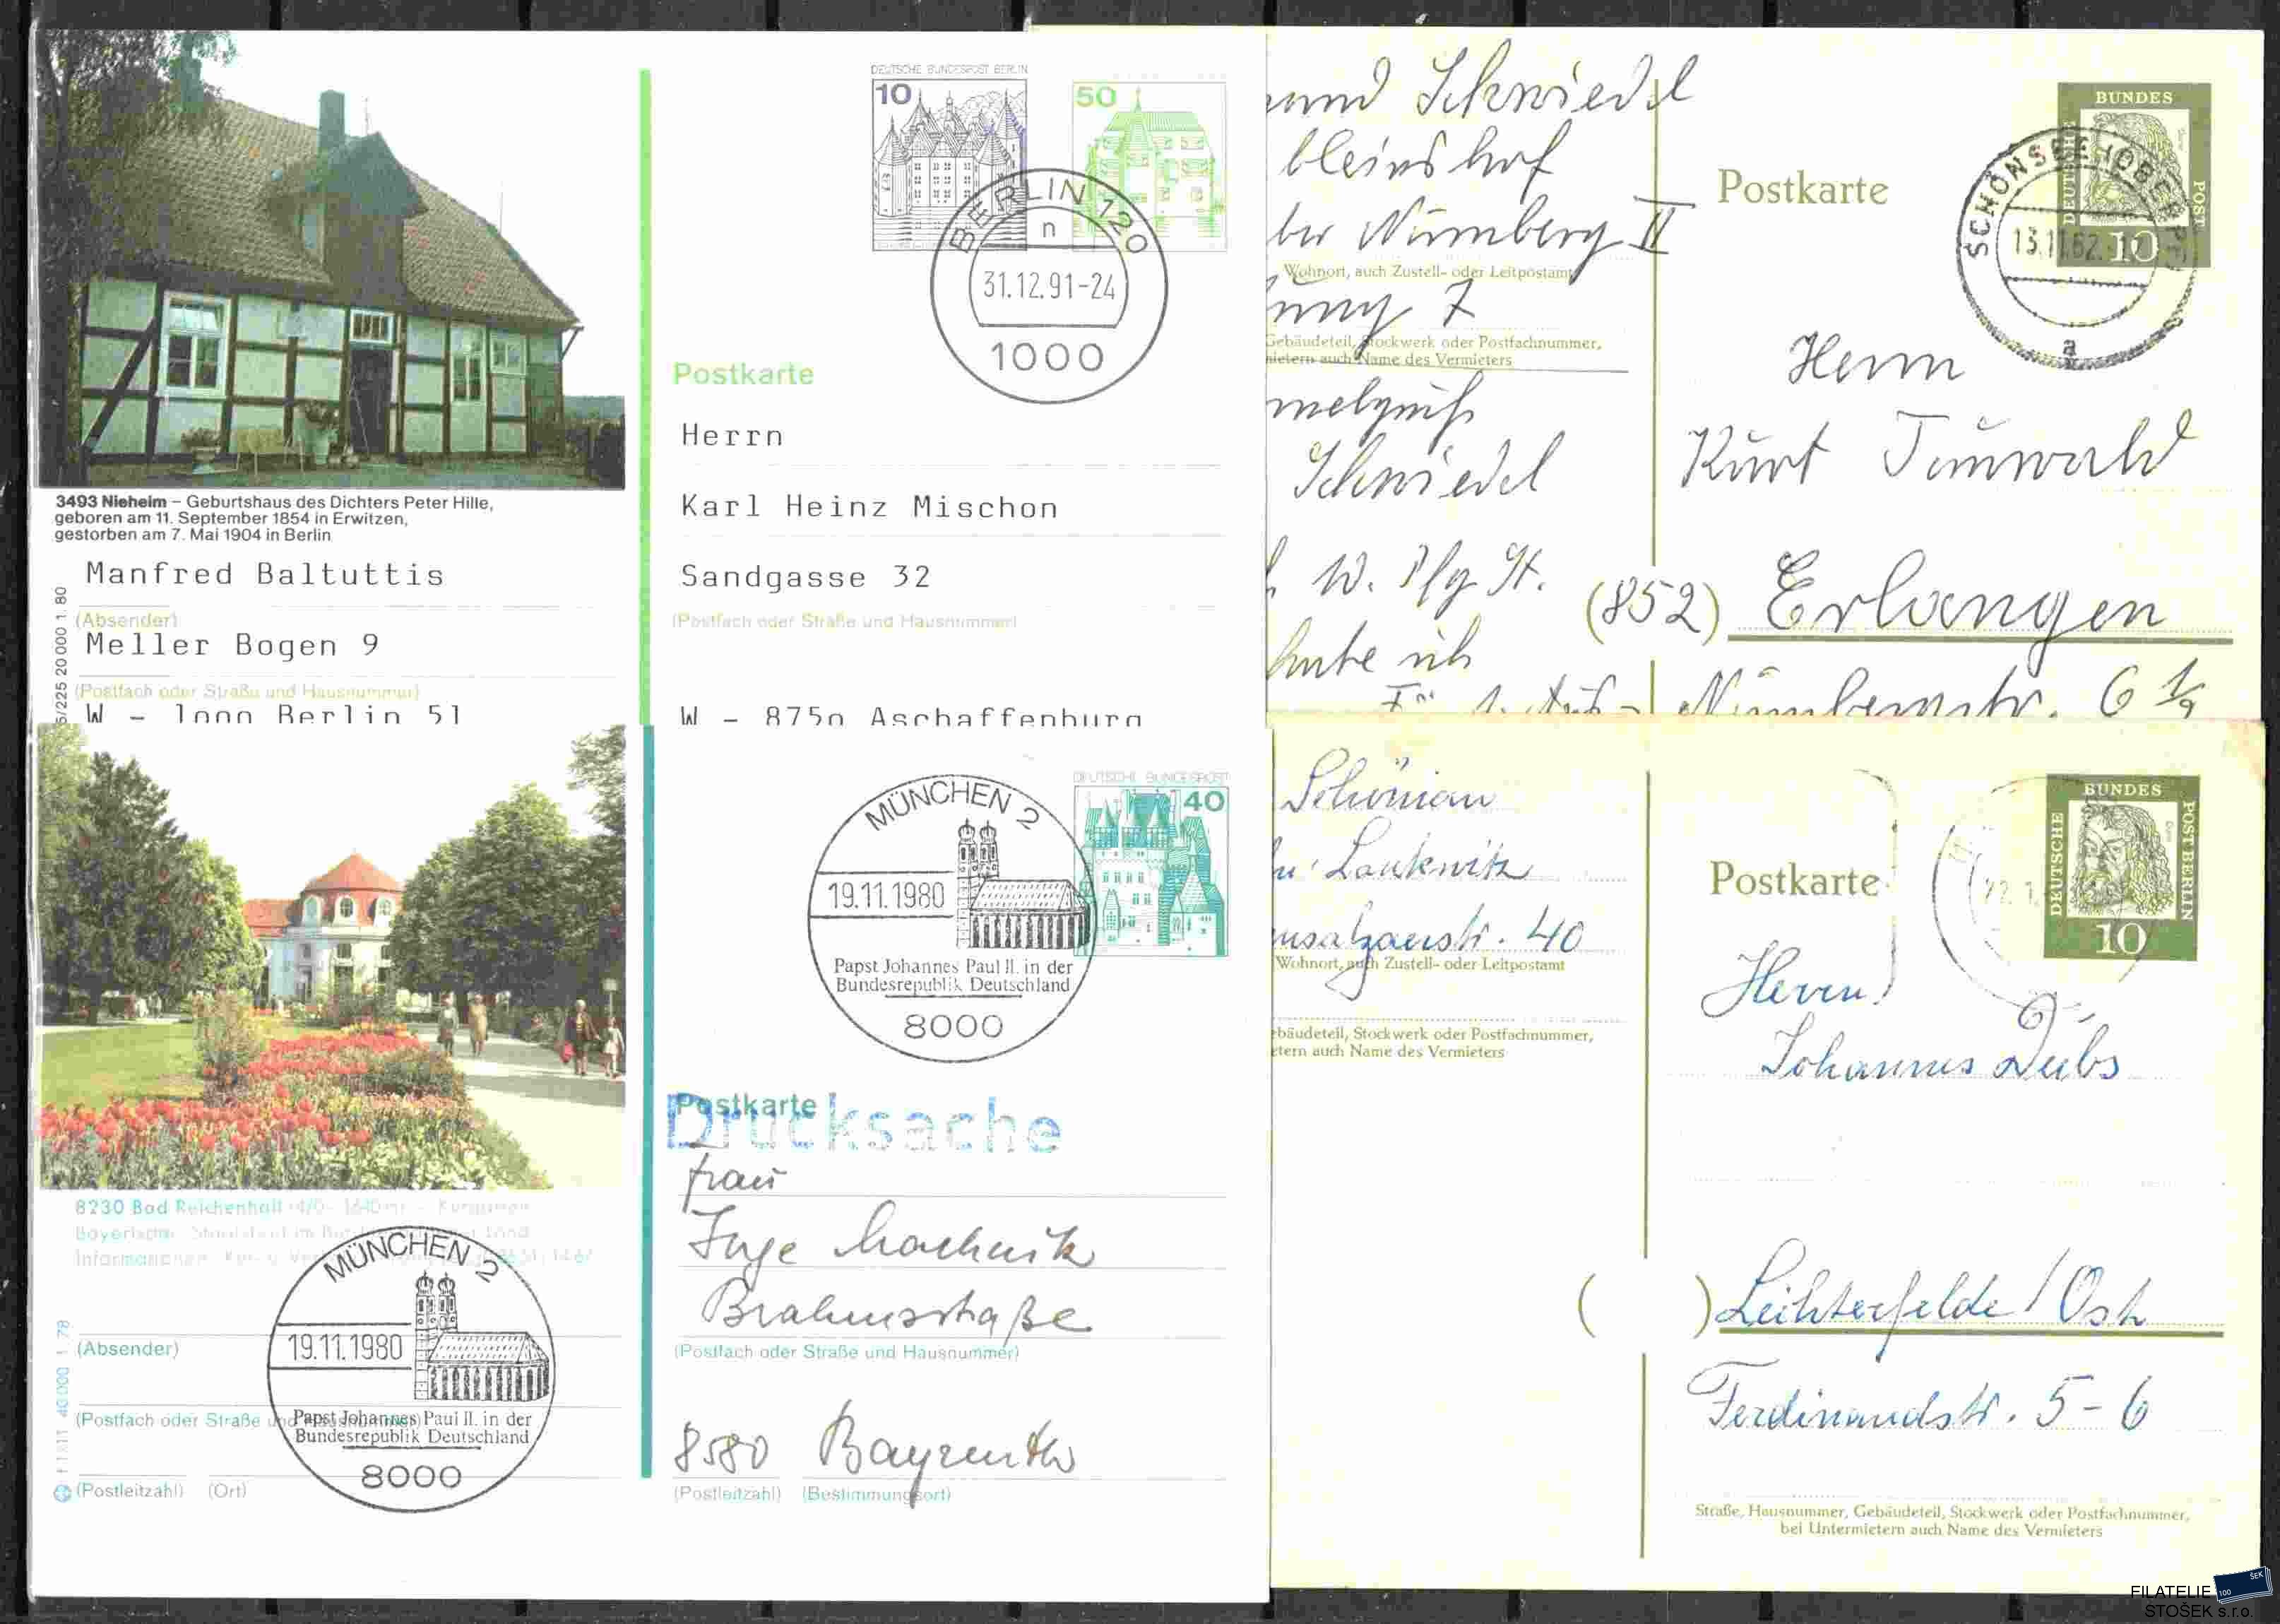 DEUTSCHE BUNDESPOST BERLIN
10
50
BERLIN 120
n
31.12.91-24
1000
Postkarte
Herrn
Karl Heinz Mischon
Sandgasse 32
(Postfach oder Straße und Hausnummer)
W - 8750 Aschaffenburg
3493 Nieheim – Geburtshaus des Dichters Peter Hille,
geboren am 11. September 1854 in Erwitzen,
gestorben am 7. Mai 1904 in Berlin
Manfred Baltuttis
(Absender)
Meller Bogen 9
(Postfach oder Straße und Hausnummer)
W - 1000 Berlin 51
5/225 20 000 1. 80
Schwiedel
Nürnberg II
Wohnort, auch Zustell- oder Leitpostamt
7
Gebäudeteil, Stockwerk oder Postfachnummer,
mietern auch Name des Vermieters
Schwiedel
Postkarte
BUNDES
DEUTSCHE
POST
10
SCHÖNSEE (OBERPF)
13.11.62
a
Herrn
Kurt
(852) Erlangen
Nürnbergstr. 6
DEUTSCHE BUNDESPOST
40
MÜNCHEN 2
19.11.1980
Papst Johannes Paul II. in der
Bundesrepublik Deutschland
8000
Postkarte
Drucksache
Frau
Inge
Brahmsstraße
(Postfach oder Straße und Hausnummer)
8580 Bayreuth
(Postleitzahl) (Bestimmungsort)
8230 Bad Reichenhall
MÜNCHEN 2
19.11.1980
Papst Johannes Paul II. in der
Bundesrepublik Deutschland
8000
(Absender)
(Postfach oder Straße und Hausnummer)
(Postleitzahl) (Ort)
40 000 1 78
Lankwitz
40
Wohnort, auch Zustell- oder Leitpostamt
ebäudeteil, Stockwerk oder Postfachnummer,
etern auch Name des Vermieters
Postkarte
BUNDES
DEUTSCHE
POST BERLIN
10
Herrn
Johannes
( ) Lichterfelde / Ost
Ferdinandstr. 5-6
Straße, Hausnummer, Gebäudeteil, Stockwerk oder Postfachnummer,
bei Untermietern auch Name des Vermieters
FILATELIE
STOŠEK s.r.o.
100
SEK